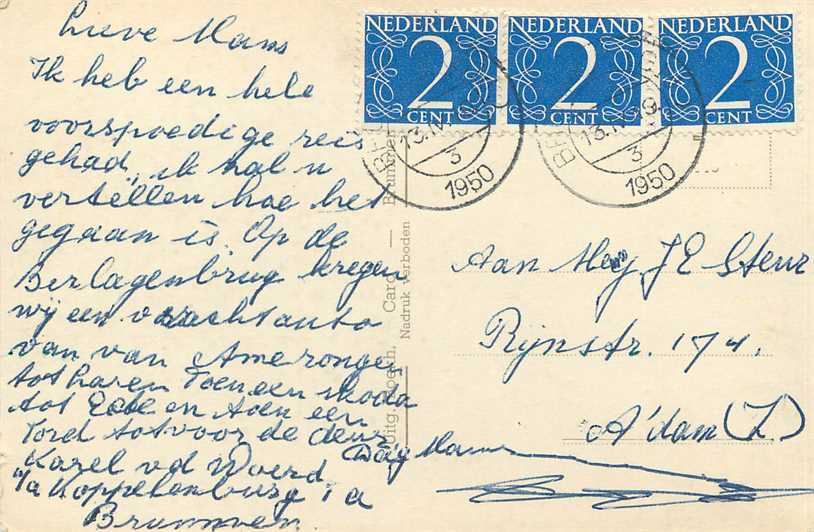 Lieve Mams
Ik heb een hele
voorspoedige reis
gehad, ik zal u
vertellen hoe het
gegaan is. Op de
Berlagenbrug kregen
wij een vrachtauto
van van Amerongen
tot haren Toen een skoda
tot Ede en toen een
Ford tot voor de deur
Dag Mams
Karel vd Woerd
p/a Koppelenburg 1a
Brummen
NEDERLAND
2
CENT
NEDERLAND
2
CENT
NEDERLAND
2
CENT
13.IV
3
1950
13.IV
3
1950
Uitg. Boekh. Card — Brummen
Nadruk verboden
Aan Mej J E Steur
Rijnstr. 174.
A'dam (Z)